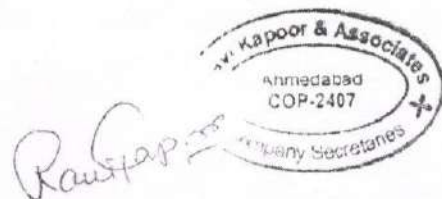 Kapoor & Associates
Ahmedabad
COP-2407
Company Secretaries
Ravi Kapoor